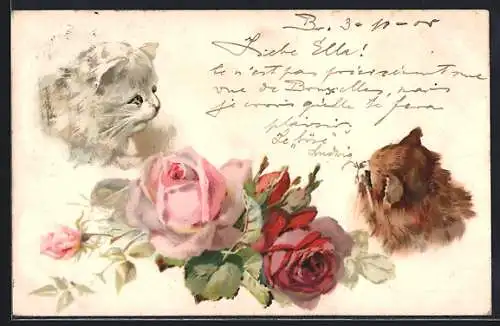 Br. 3-10-05
Liebe Ella!
Ce n'est pas précisément une
vue de Bruxelles, mais
je crois qu'elle te fera
plaisir.
Ludwig